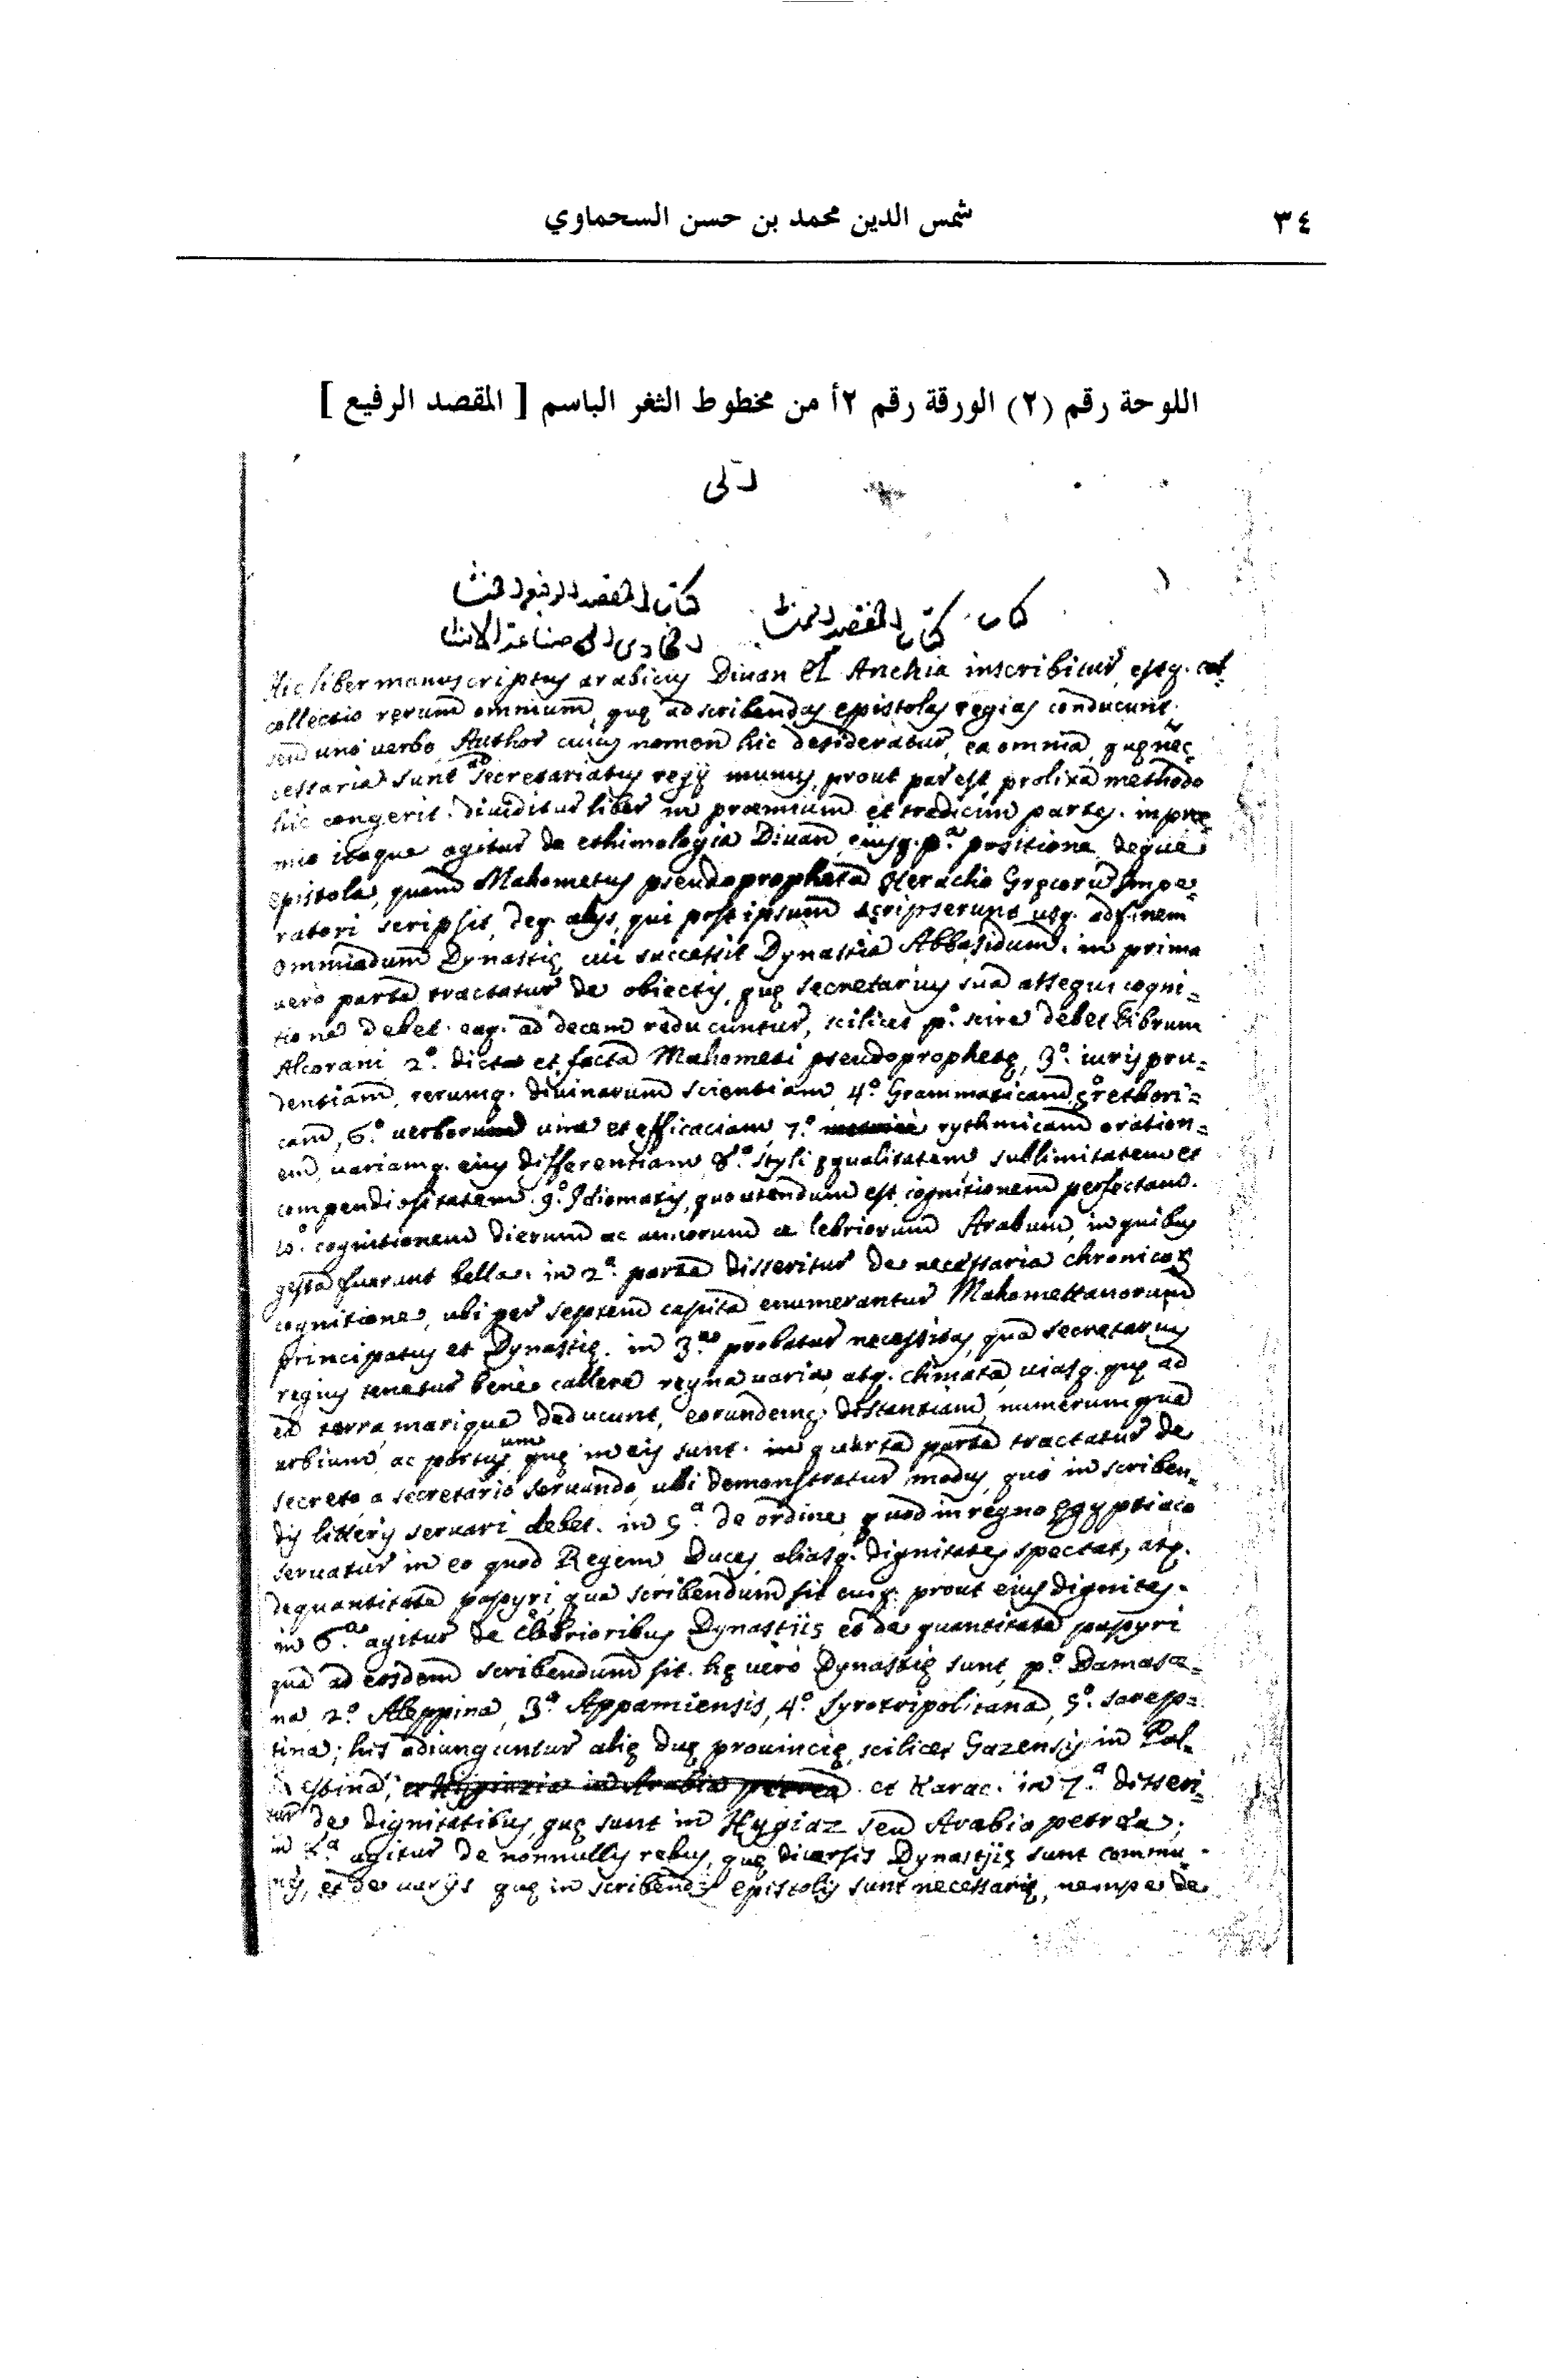 ٣٤
شمس الدين محمد بن حسن السحماوي
اللوحة رقم (٢) الورقة رقم ٢أ من مخطوط الثغر الباسم [ المقصد الرفيع ]
كتاب المقصد الرفيع المنشا
كتاب كتاب المقصد المنشا
الهادى الى صناعة الانشا
Hic liber manuscriptus arabicus Diuan el Anchia inscribitur, estq. col-
collectio rerum omnium, quę ad scribendas epistolas regias conducunt.
seu uno uerbo, Author cuius nomen hic desideratur, ea omnia, quę nec-
cessaria sunt ad secretariatus regij munus, prout par est, prolixa methodo
hic congerit. diuiditur liber in proemium et tredicim partes. in proe-
mio itaque agitur de ethimologia Diuan, eiusq. pa. positione, deque
epistola, quam Mahometus pseudopropheta Heraclio Gręcorū Impe-
ratori scripsit, deq. alijs, qui post ipsum scripserunt usq. ad finem
Ommiadum Dynastię, cui successit Dynastia Abbasidum. in prima
uero parte tractatur de obiectis, quę secretarius sua assequi cogni-
tione debet. eaq. ad decem reducuntur, scilicet po. scire debet Librum
Alcorani 2o. dicta et facta Mahometi pseudoprophetę, 3o. iurispru-
dentiam, rerumq. diuinarum scientiam, 4o. Grammaticam, 5o rethori-
cam, 6.o uerborum uim et efficaciam, 7.o rythmicam oration-
em, uariamq. eius differentiam, 8.o styli ęqualitatem, sublimitatem et
compendiositatem. 9o. Idiomatis, quo utendum est, cognitionem perfectam.
10o. cognitionem dierum ac annorum celebriorum Arabum, in quibus
gesta fuerunt bella. in 2a. parte disseritur de necessaria chronicor
cognitione, ubi per septem capita enumerantur Mahomettanorum
Principatus et Dynastię. in 3a. probatur necessitas, qua secretarius
regius tenetur bene callere regna uaria, atq. climata, uiasq. quę ad
ea terra marique deducunt, eorundemq. distantiam, numerumque
urbium, ac portuum, quę in eis sunt. in quarta parte tractatur de
secreto a secretario seruando, ubi demonstratur modus, quo in scriben-
dis litteris seruari debet. in 5a. de ordine, quod in regno Ęgyptiaco
seruatur in eo quod Regem, Duces, aliasq. dignitates spectat, atq.
de quantitate papyri, qua scribendum sit cuiq. prout eius dignitas.
in 6.a agitur de celebrioribus Dynastijs, et de quantitate papyri
qua ad eosdem scribendum sit. hę uero Dynastię sunt, po. Damasce-
na, 2o. Aleppina, 3a Appamiensis, 4o. Syrotripolitana, 5o. sarepp-
tina; his adiunguntur alię duę prouincię, scilicet Gazensis in Pal-
lestina, et Karac. in 7.a disseri-
tur de dignitatibus, quę sunt in Hygiaz seu Arabia petrea;
in 8.a agitur de nonnullis rebus, quę diuersis Dynastijs sunt commu-
nes, et de uarijs quę in scribendis epistolis sunt necessarię, nempe de